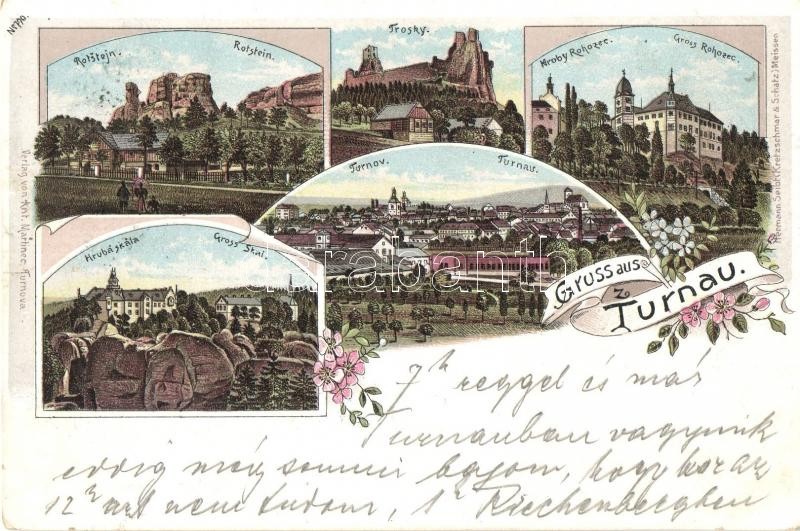 Nr 770.
Rotštejn. Rotstein.
Trosky.
Hroby Rohozec. Gross Rohozec.
Turnov. Turnau.
Hrubá skála Gross Skal.
Gruss aus
z
Turnau.
Verlag von Ant. Mařinec, Turnova.
Hermann Seibt (Kretzschmar & Schatz) Meissen
7h reggel és már
Turnauban vagyunk
eddig még semmi bajom, hogy
12h azt nem tudom, 1h Riechenbergben